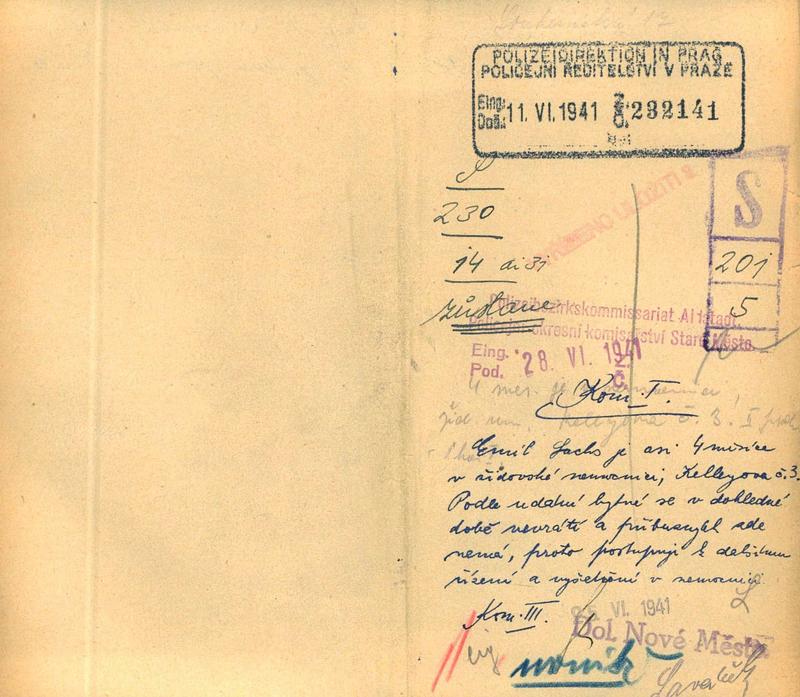 POLIZEIDIREKTION IN PRAG
POLICEJNÍ ŘEDITELSTVÍ V PRAZE
Eing. Došl. 11. VI. 1941 Z. Č. 232141
S
230
14 ai 31
zůstane
S
201
5
Polizeibezirkskommissariat Altstadt.
Policejní okresní komisařství Staré Město.
Eing. Pod. 28. VI. 1941 Z. Č.
4 měs. je
Kom. I.
Kelleyova č. 3. I
Emil Sachs je asi 4 měsíce
v židovské nemocnici, Kelleyova č. 3.
Podle udání bytné se v dohledné
době nevrátí a příbuzných zde
nemá, proto postupuji k dalšímu
řízení a vyšetření v nemocnici.
Kom. III.
25. VI. 1941
Dol. Nové Město